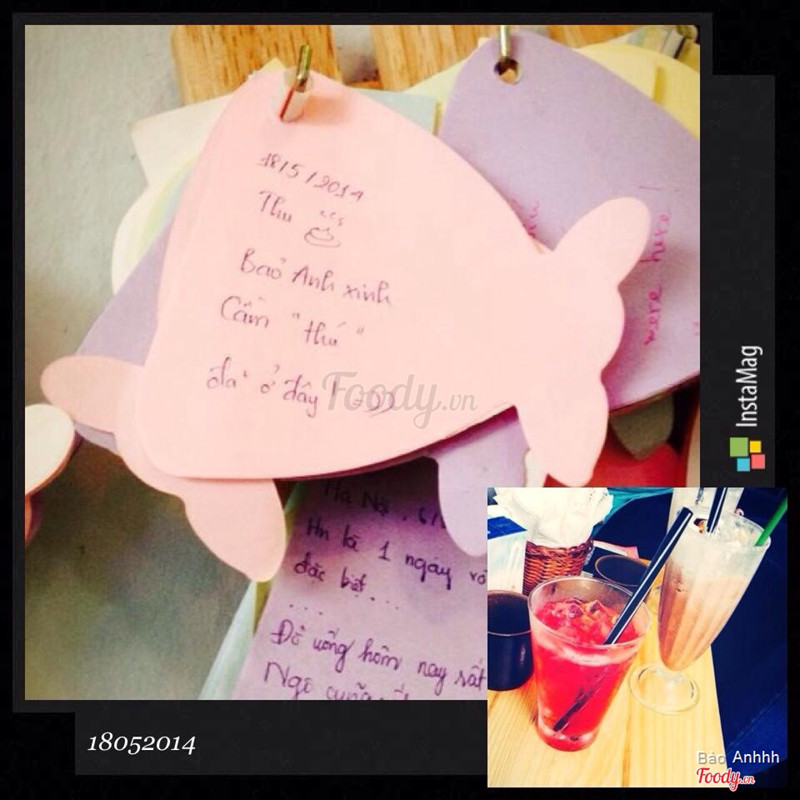 18/5/2014
Thu
Bảo Anh xinh
Cầm "thú"
đã ở đây!
were here!
Foody.vn
Hà Nội, 6/
Hn là 1 ngày
đặc biệt...
...
Đồ uống hôm nay
Ngô
InstaMag
18052014
Bảo Anhhh
Foody.vn